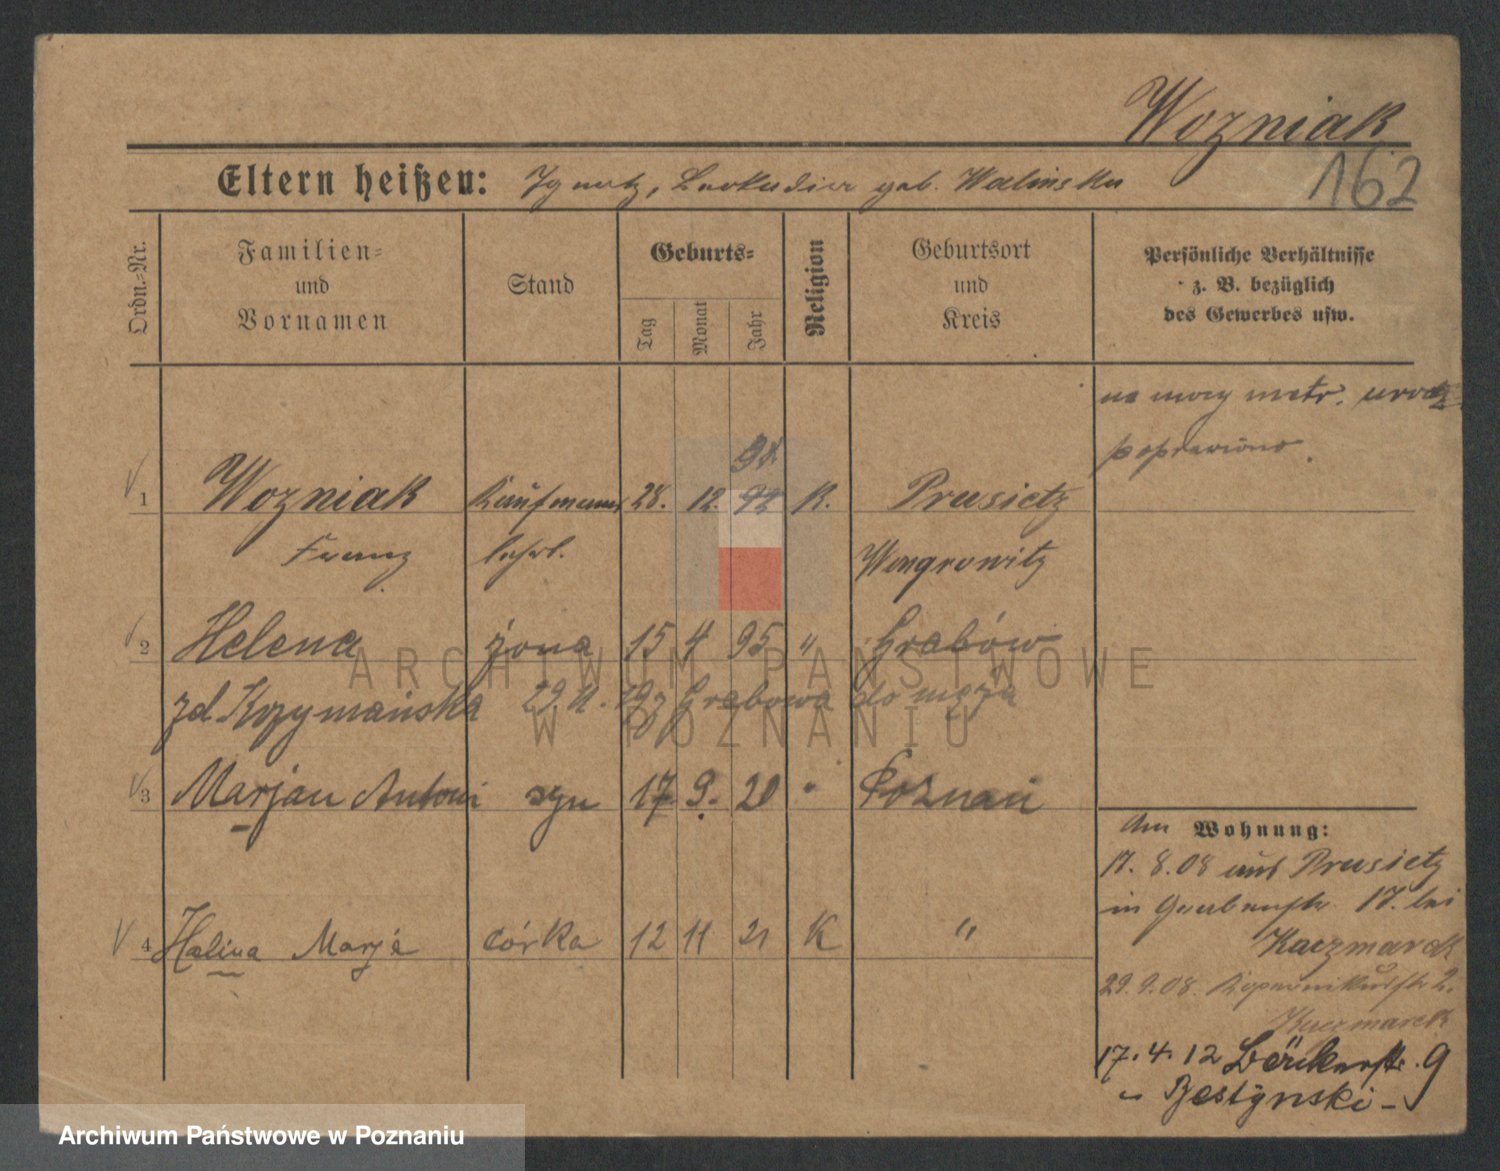 Wozniak
162
Eltern heißen: Ignatz, Leokadia geb. Walinska
Ordn.-Nr.
Familien- und Vornamen
Stand
Geburts-
Tag
Monat
Jahr
Religion
Geburtsort und Kreis
Persönliche Verhältnisse z. B. bezüglich des Gewerbes usw.
na mocy metr. urodz.
poprawiono.
91
1 Wozniak Kaufmanns 28. 12. 92 K. Prusietz
Franz lehrl. Wongrowitz
2 Helena żona 15 4 95 " Grabów
zd. Kozymańska 29.11.19 z Grabowa do męża
3 Marjan Antoni syn 17 9. 20 " Poznań
4 Halina Marja córka 12 11 21 K "
Am Wohnung:
17. 8. 08 aus Prusietz
in Grabenstr 17. bei
Kaczmarek
29. 9. 08. 2.
Kaczmarek
17. 4. 12 Bäckerstr. 9
ARCHIWUM PAŃSTWOWE
W POZNANIU
Archiwum Państwowe w Poznaniu